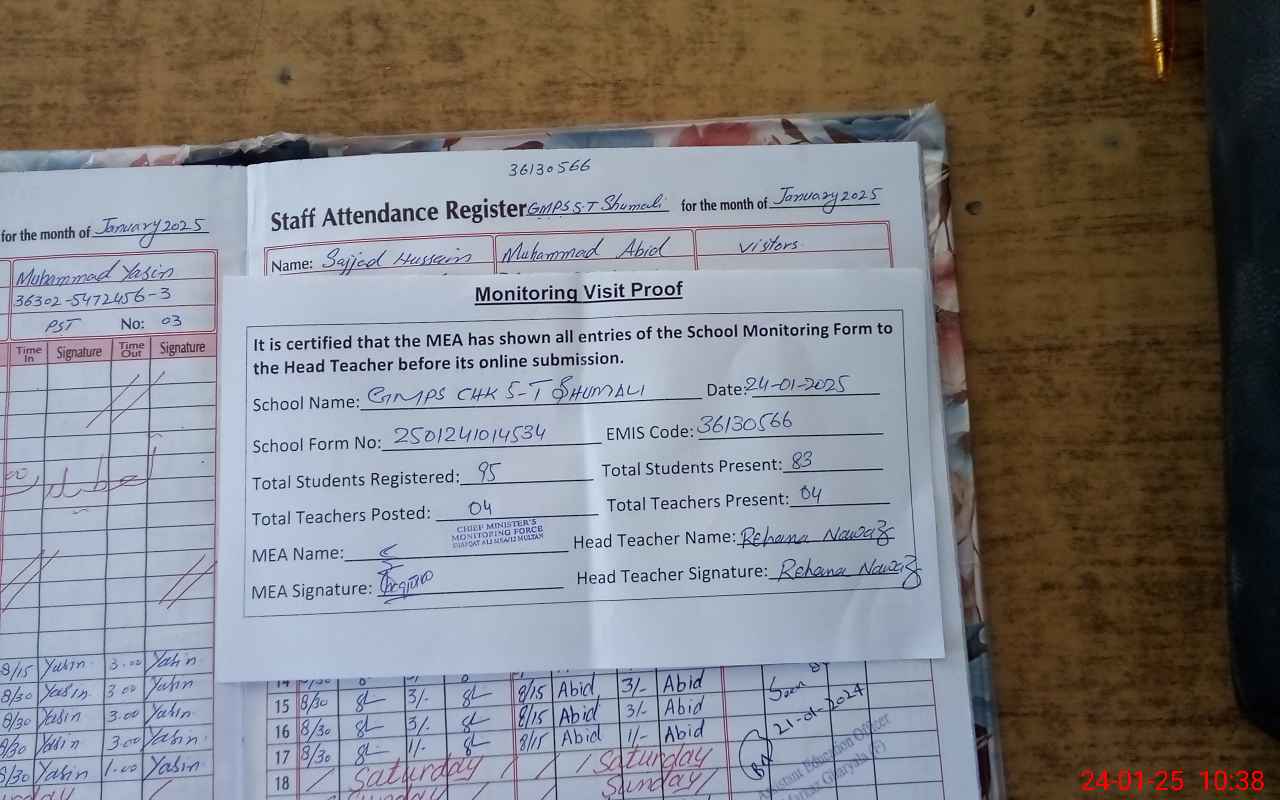 36130566
for the month of January 2025
Staff Attendance Register GMPS 5-T Shumali for the month of January 2025
Muhammad Yasin
36302-5472456-3
PST No: 03
Time In Signature Time Out Signature
Name: Sajjed Hussain Muhammad Abid Visitors
Monitoring Visit Proof
It is certified that the MEA has shown all entries of the School Monitoring Form to
the Head Teacher before its online submission.
School Name: GMPS CHK 5-T SHUMALI Date: 24-01-2025
School Form No: 2501241014534 EMIS Code: 36130566
Total Students Registered: 95 Total Students Present: 83
Total Teachers Posted: 04 Total Teachers Present: 04
CHIEF MINISTER'S
MONITORING FORCE
MEA Name: Head Teacher Name: Rehana Nawaz
MEA Signature: Head Teacher Signature: Rehana Nawaz
8/15 Yasin 3.00 Yasin
8/30 Yasin 3.00 Yasin
8/30 Yasin 3.00 Yasin
8/30 Yasin 3.00 Yasin
8/30 Yasin 1.00 Yasin
14
15 8/30 3/- 8/15 Abid 3/- Abid
16 8/30 3/- 8/15 Abid 3/- Abid
17 8/30 1/- 8/15 Abid 1/- Abid
18 Saturday Saturday
Sunday
Seen
21-01-2024
Assistant Education Officer
24-01-25 10:38